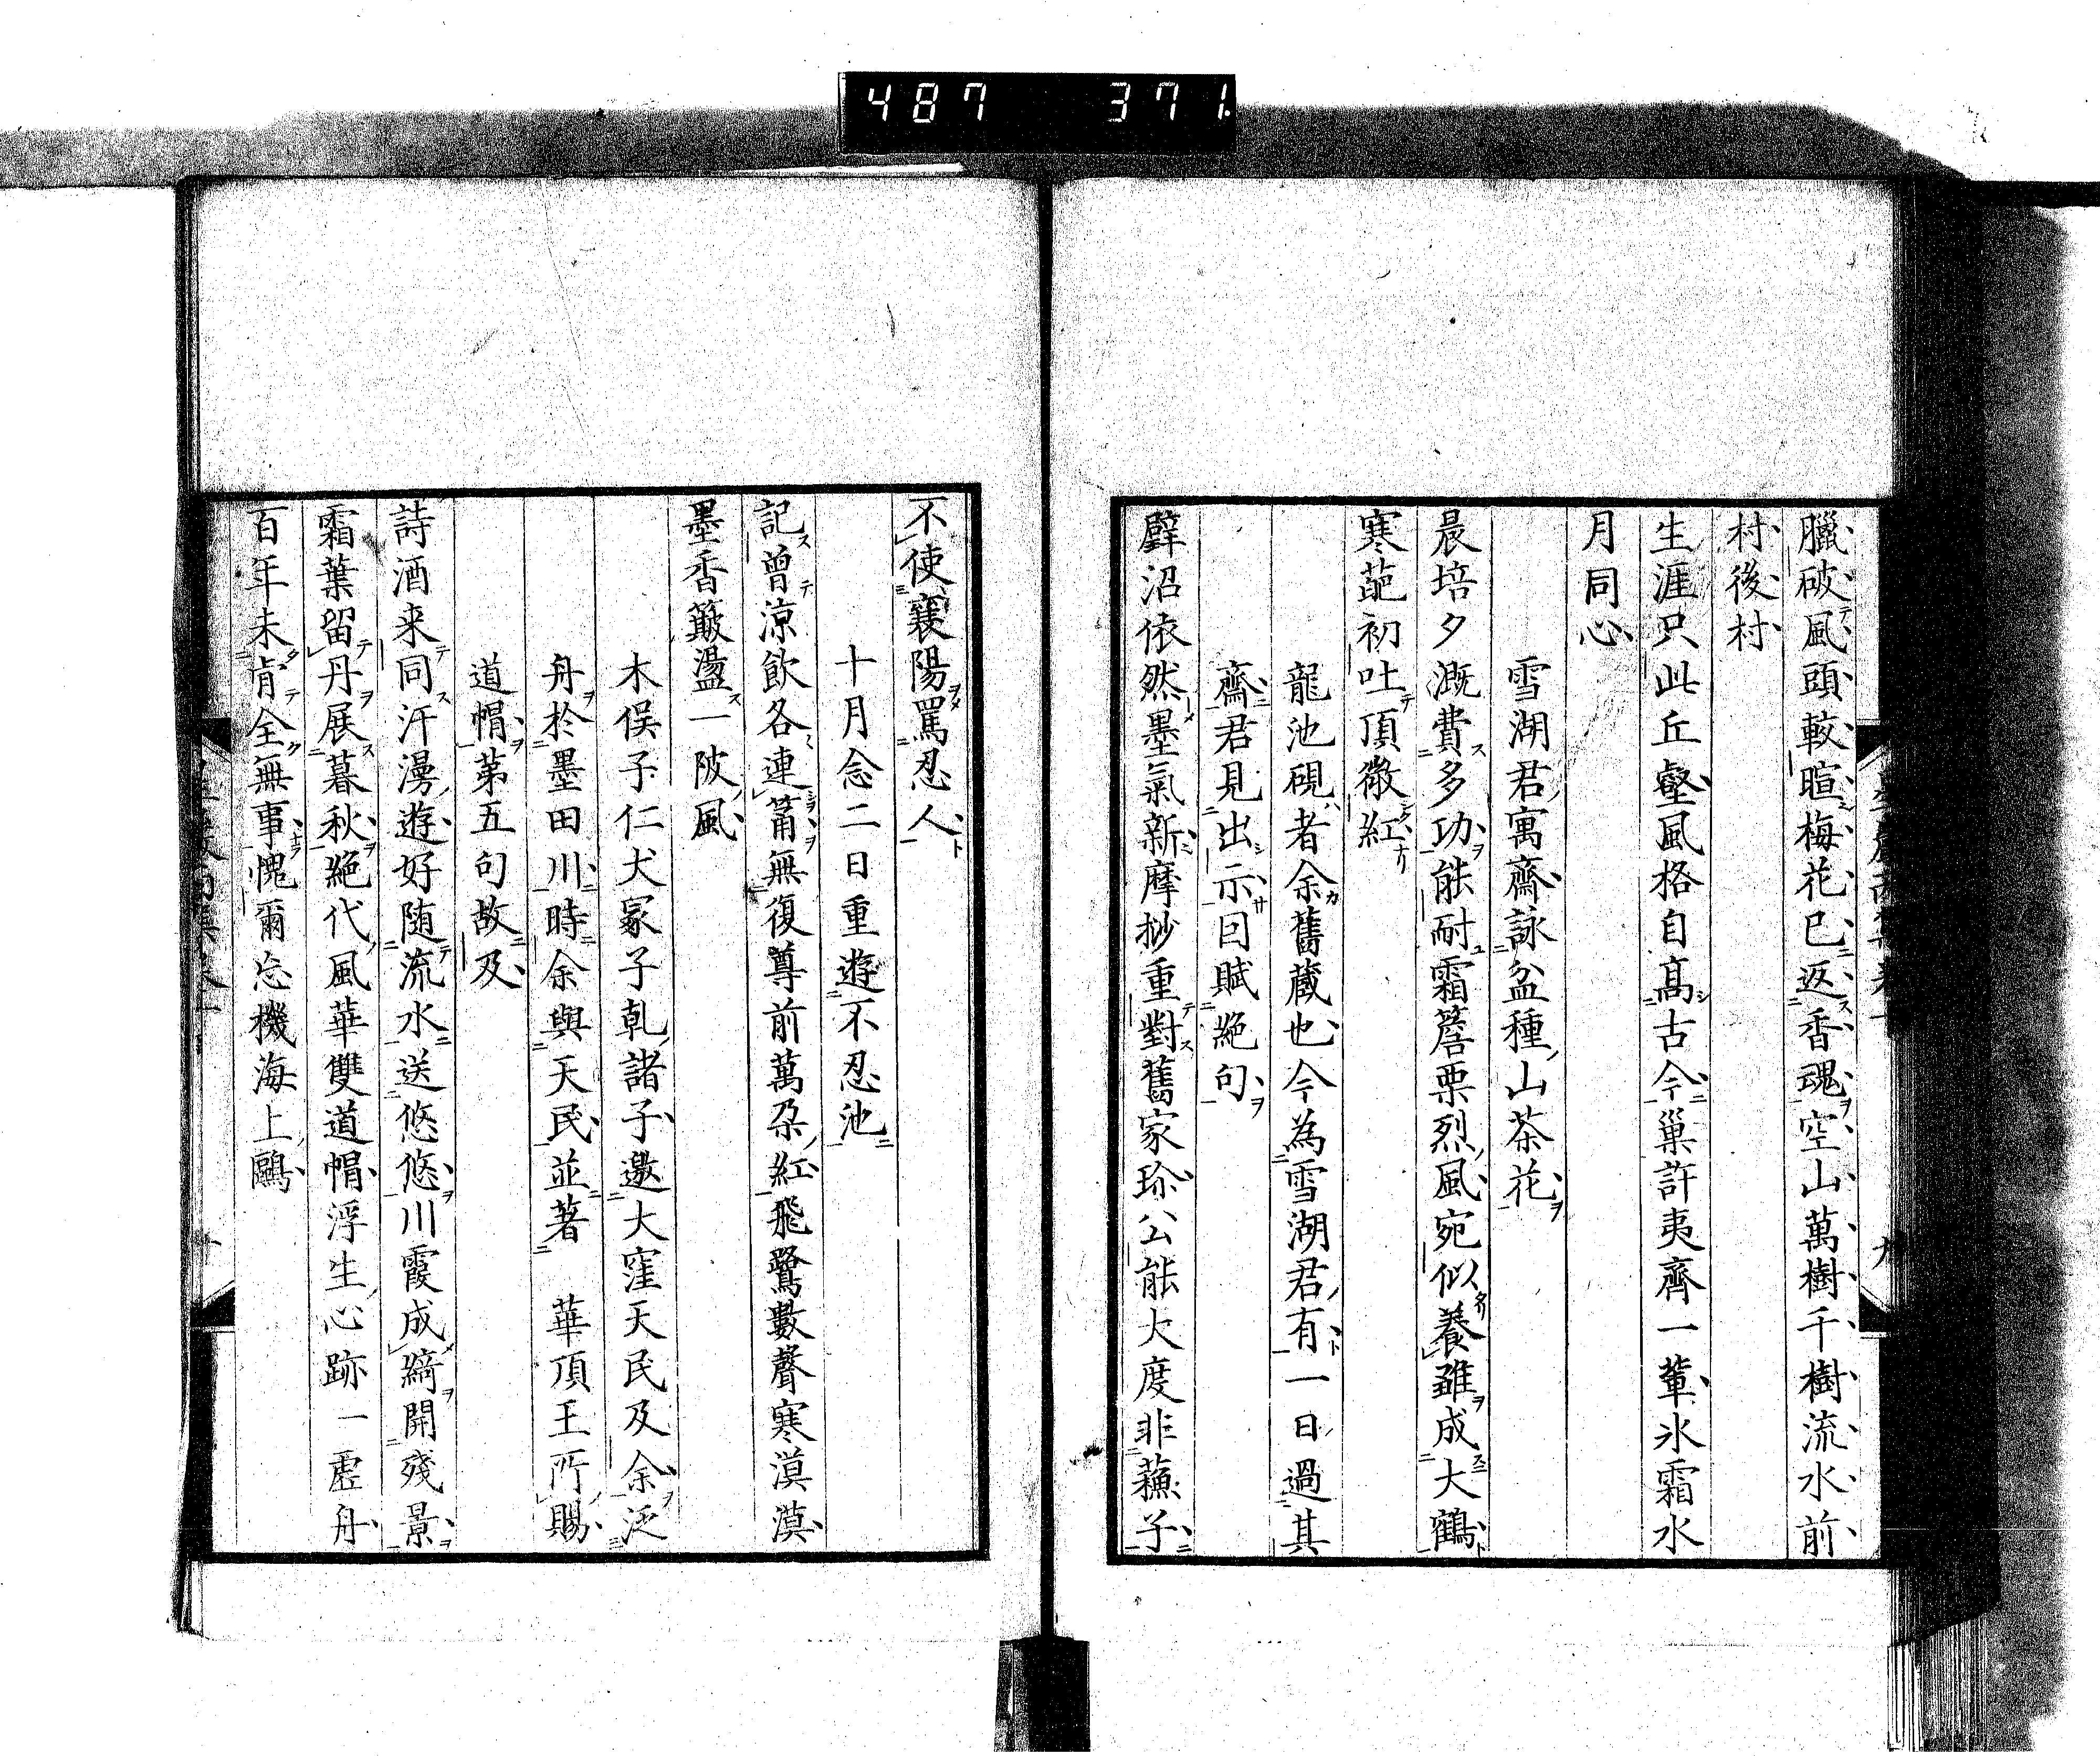 487 371
臘破風頭較暄梅花已返香魂空山萬樹千樹流水前
村後村
生涯只此丘壑風格自高古今巢許夷齊一輩氷霜水
月同心
雪湖君寓齋詠盆種山茶花
晨培夕漑費多功能耐霜簷栗烈風宛似養雖成大鶴
寒葩初吐頂微紅
龍池硯者余舊蔵也今為雪湖君有一日過其
齋君見出示因賦絶句
壁沼依然墨氣新摩挱重對舊家珍公能大度非蘓子
不使襄陽罵忍人
十月念二日重遊不忍池
記曽涼飲各連筩無復尊前萬朶紅飛鷺數聲寒漠漠
墨香簸盪一陂風
木俣子仁犬冢子乹諸子邀大窪天民及余泛
舟於墨田川時余與天民並著 華頂王所賜
道帽第五句故及
詩酒来同汗漫遊好随流水送悠悠川霞成綺開殘景
霜葉留丹展暮秋絶代風華雙道帽浮生心跡一虚舟
百年未肯全無事愧爾忘機海上鷗